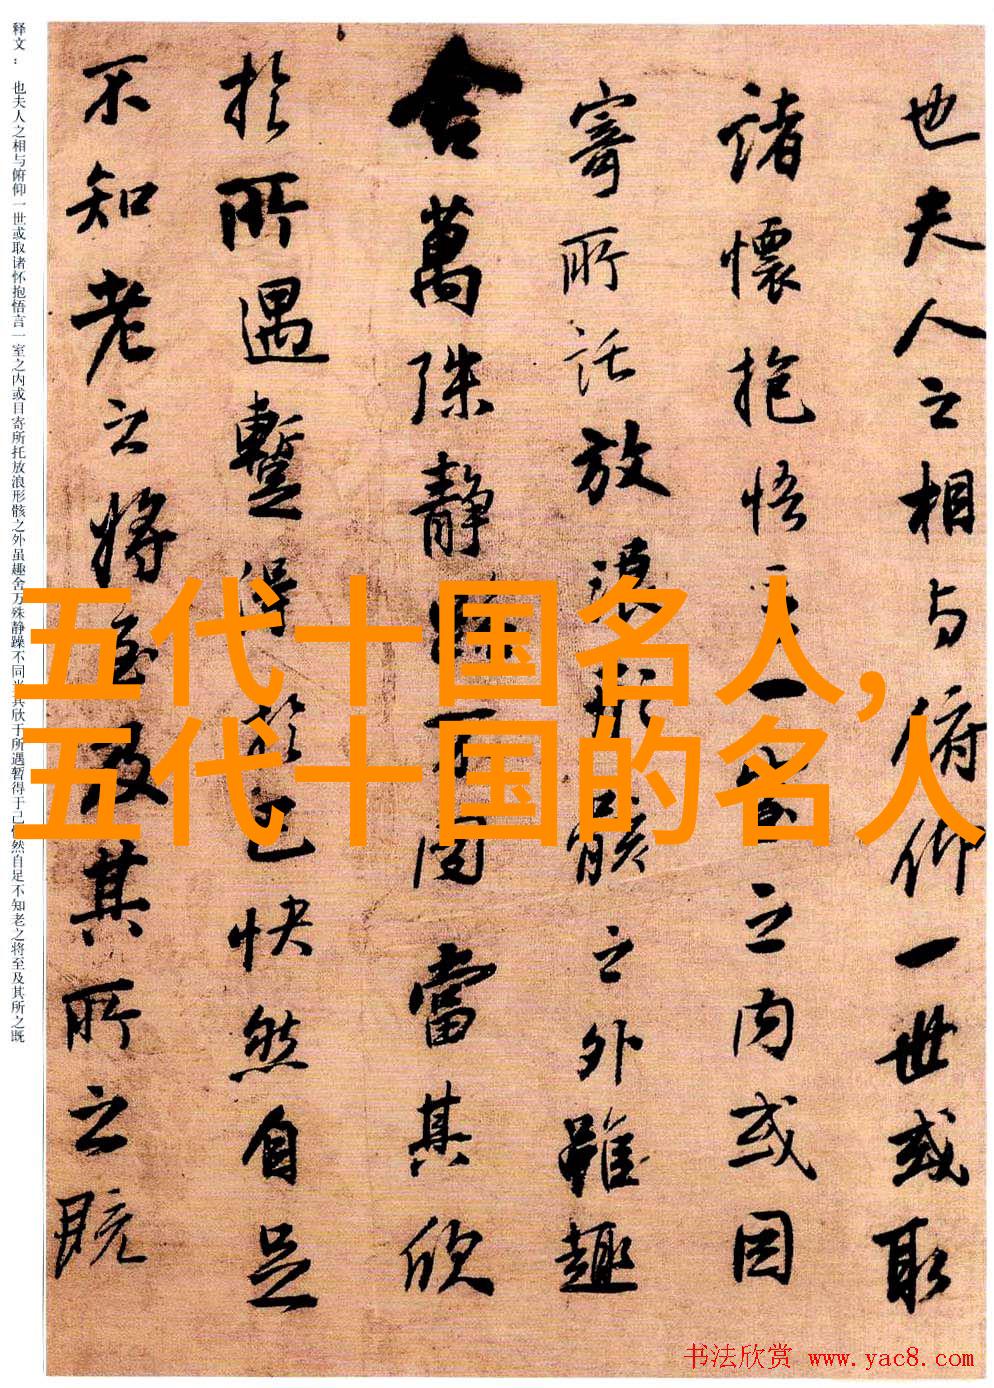 也夫人之相与俯仰一世或取
诸懷抱悟言一室之内或因
寄所託放浪形骸之外雖趣
舍萬殊静躁不同當其欣
於所遇暫得於己快然自足
不知老之将至及其所之既
释文：也夫人之相与俯仰一世或取诸怀抱悟言一室之内或目寄所托放浪形骸之外虽趣舍万殊静躁不同当其欣于所遇暂得于己快然自足不知老之将至及其所之既
五代十国名人,
五代十国的名人
书法欣赏 www.yac8.com